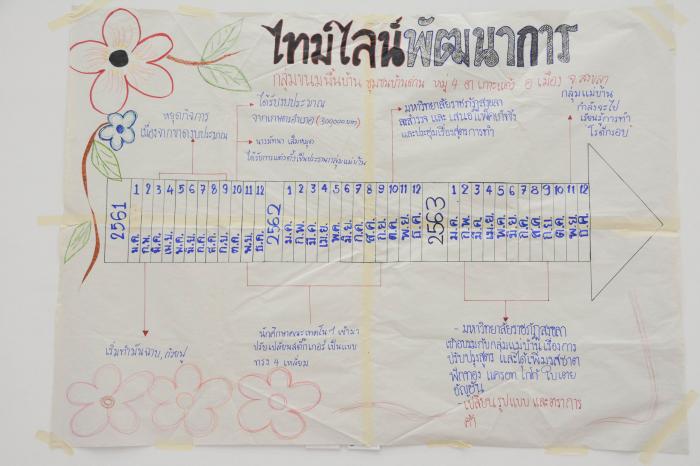 ไทม์ไลน์พัฒนาการ
กลุ่มขนมพื้นบ้าน ชุมชนบ้านด่าน หมู่ 4 ต.เกาะแต้ว อ.เมือง จ.สงขลา
หยุดกิจการ
เนื่องจากขาดงบประมาณ
ได้รับงบประมาณ
(300000 บาท)
ได้รับการแต่งตั้งเป็นประธานกลุ่มแม่บ้าน
มหาวิทยาลัยราชภัฏสงขลา
ลงสำรวจ และ เสนอแพ็คเกจจิ้ง
และประชุมเรื่องสูตรการทำ
กลุ่มแม่บ้าน
กำลังจะไป
เรียนรู้การทำ
2561
1 2 3 4 5 6 7 8 9 10 11 12
ม.ค. ก.พ. มี.ค. เม.ย. พ.ค. มิ.ย. ก.ค. ส.ค. ก.ย. ต.ค. พ.ย. ธ.ค.
2562
1 2 3 4 5 6 7 8 9 10 11 12
ม.ค. ก.พ. มี.ค. เม.ย. พ.ค. มิ.ย. ก.ค. ส.ค. ก.ย. ต.ค. พ.ย. ธ.ค.
2563
1 2 3 4 5 6 7 8 9 10 11 12
ม.ค. ก.พ. มี.ค. เม.ย. พ.ค. มิ.ย. ก.ค. ส.ค. ก.ย. ต.ค. พ.ย. ธ.ค.
เริ่มทำมันฉาบ, กล้วยฉาบ
นักศึกษาคณะเทคโนฯ เข้ามา
ปรับเปลี่ยนสติ๊กเกอร์ เป็นแบบ
ทรง 4 เหลี่ยม
- มหาวิทยาลัยราชภัฏสงขลา
เข้าอบรมกับกลุ่มแม่บ้านเรื่องการ
ปรับปรุงสูตร และได้เพิ่มรสชาติ
ฟักทอง แครอท โกโก้ ใบเตย
อัญชัน
- เปลี่ยนรูปแบบ และตราการ
ค้า